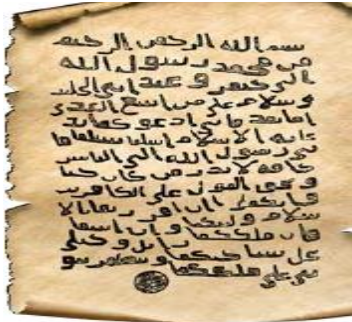 بسم الله الرحمن الرحيم
من محمد رسول الله
الى جيفر و عبد ابني الجلند
و سلام على من اتبع الهدى
اما بعد فاني ادعو كما بد
عاية الاسلام اسلما تسلما فا
ني رسول الله الى الناس
كافة لانذر من كان حيا
و يحق القول على الكافرين
فانكما ان اقررتما بالا
سلام وليتكما و ان ابيتما
فان ملككما زايل و خيلي
تحل بساحتكما و تظهر نبو
تي على ملككما